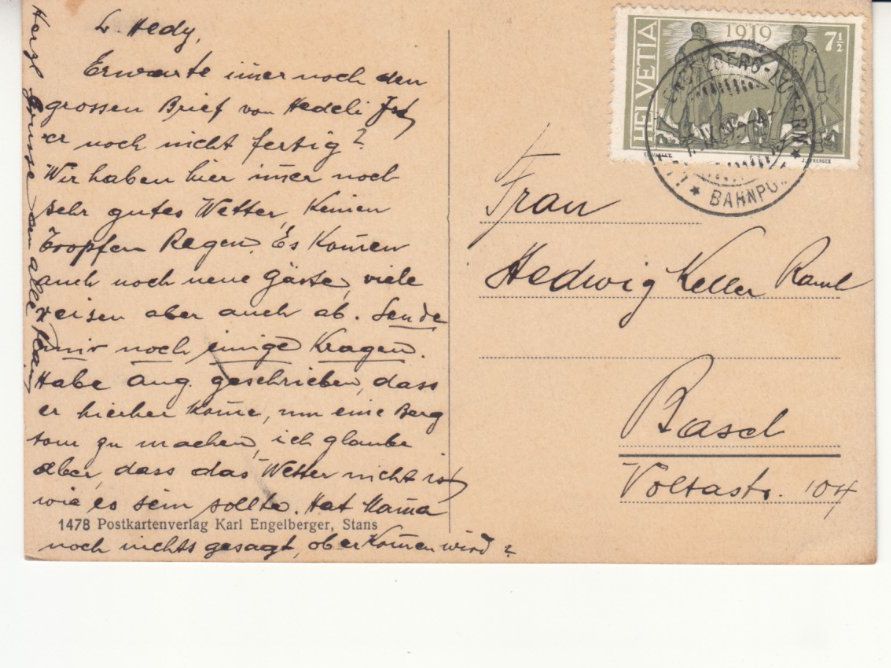 L. Hedy,
Erwarte im̄er noch den
grossen Brief von Hedeli Ist
er noch nicht fertig?
Wir haben hier im̄er noch
sehr gutes Wetter, Keinen
Tropfen Regen. Es Kom̄en
auch noch neue Gäste, viele
reisen aber auch ab. Sende
mir noch einige Kragen.
Habe Aug. geschrieben, dass
er hierher Kom̄e, um eine Berg
tour zu machen, ich glaube
aber, dass das Wetter nicht ist
wie es sein sollte. Hat Mama
noch nichts gesagt, ob er Kom̄en wird?
Herzl Grüsse an alle
1478 Postkartenverlag Karl Engelberger, Stans
HELVETIA
1919
7½
BAHNPO
Frau
Hedwig Keller
Basel
Voltastr. 104